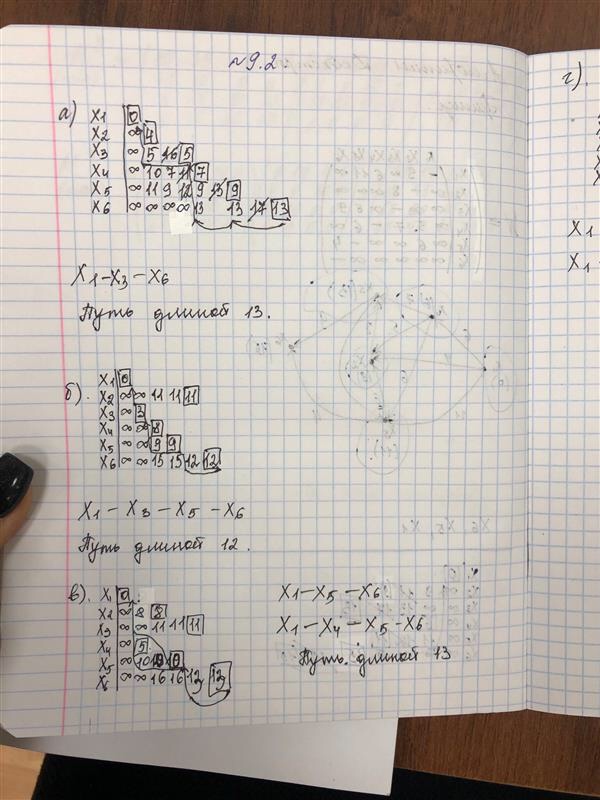 №9.2.
а) X1 | 0
X2 | ∞ 4
X3 | ∞ 5 16 5
X4 | ∞ 10 7 11 7
X5 | ∞ 11 9 12 9 13 9
X6 | ∞ ∞ ∞ ∞ 13 13 17 13
X1 – X3 – X6
Путь длиной 13.
б). X1 | 0
X2 | ∞ ∞ 11 11 11
X3 | ∞ 3
X4 | ∞ ∞ 8
X5 | ∞ ∞ 9 9
X6 | ∞ ∞ 15 15 12 12
X1 – X3 – X5 – X6
Путь длиной 12.
в). X1 | 0
X2 | ∞ 8 8
X3 | ∞ ∞ 11 11 11
X4 | ∞ 5
X5 | ∞ 10 10 10
X6 | ∞ ∞ 16 16 13 13
X1 – X5 – X6
X1 – X4 – X5 – X6
Путь длиной 13
г).
X1
X1 –